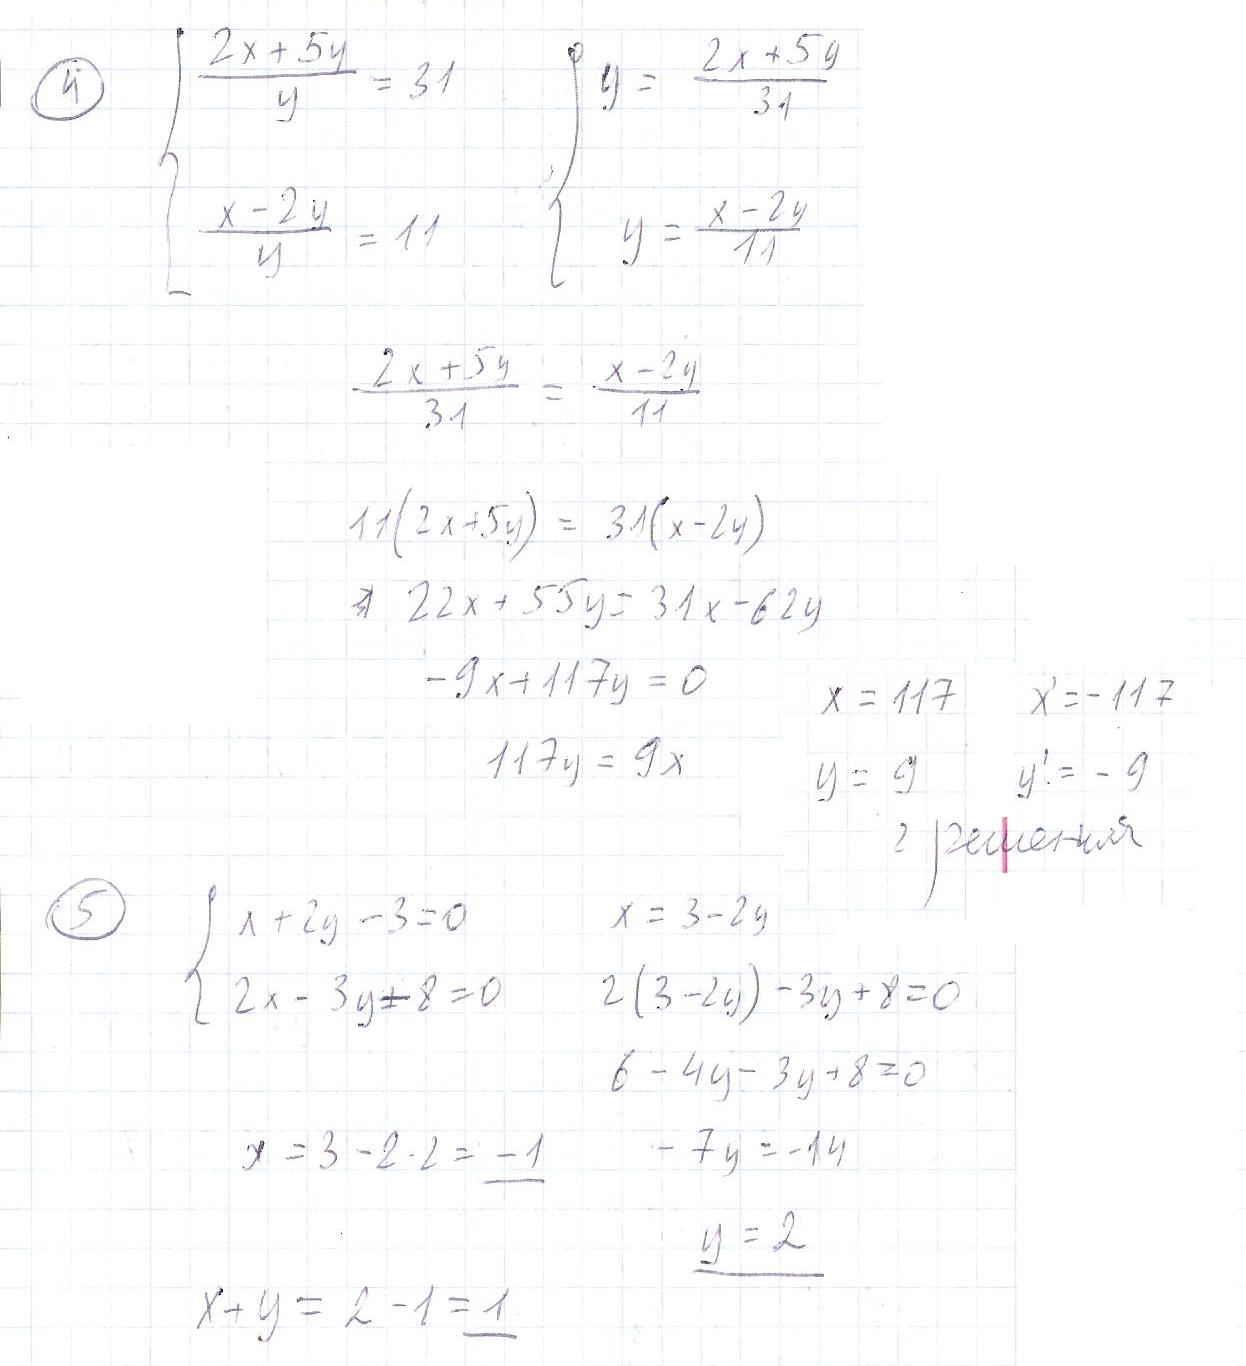 4
(2x+5y)/y = 31    y = (2x+5y)/31
(x-2y)/y = 11    y = (x-2y)/11
(2x+5y)/31 = (x-2y)/11
11(2x+5y) = 31(x-2y)
22x+55y=31x-62y
-9x+117y=0
117y=9x
x=117    x'=-117
y=9    y'=-9
2 решения
5
x+2y-3=0    x=3-2y
2x-3y+8=0    2(3-2y)-3y+8=0
6-4y-3y+8=0
x=3-2·2=-1    -7y=-14
y=2
x+y=2-1=1